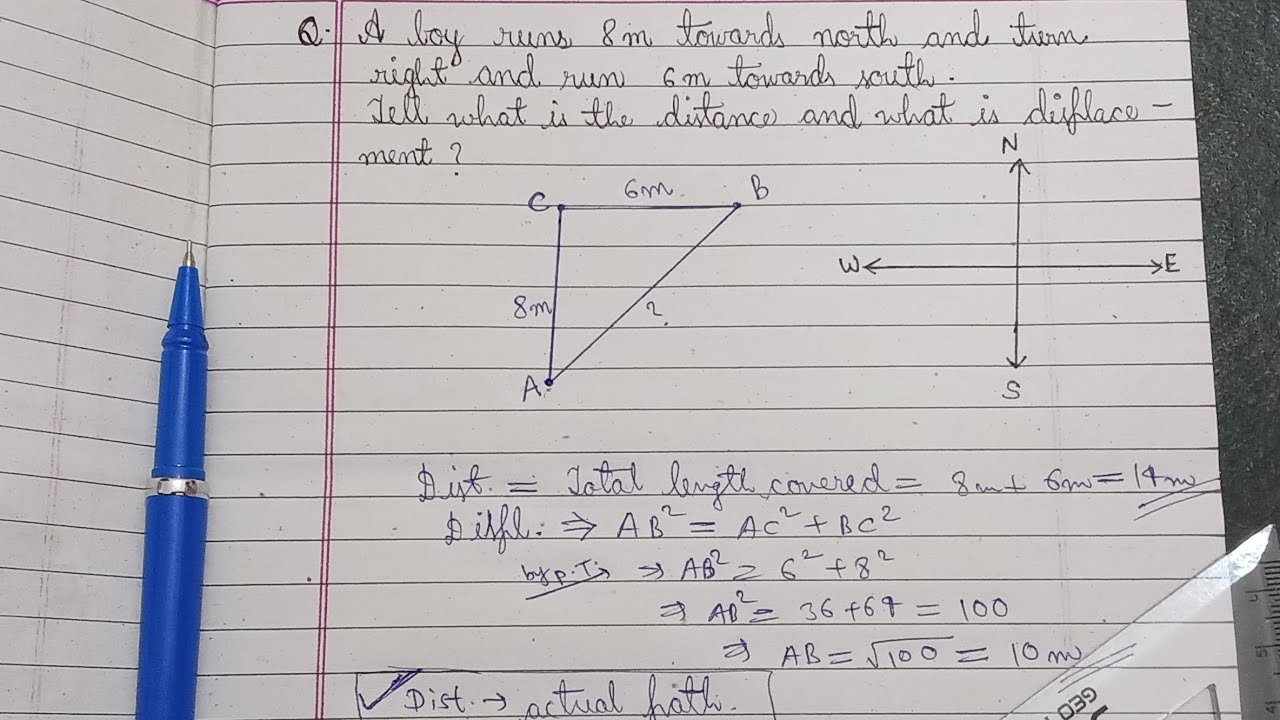 Q. A boy runs 8m towards north and turn
right and run 6m towards south.
Tell what is the distance and what is displace-
ment ?
N
C
6m.
B
W
E
8m
?
A
S
Dist. = Total length covered = 8m + 6m = 14m
Displ. ⇒ AB² = AC² + BC²
by p.T. ⇒ AB² = 6² + 8²
⇒ AB² = 36 + 64 = 100
⇒ AB = √100 = 10m
✓ Dist. → actual path.
GEO